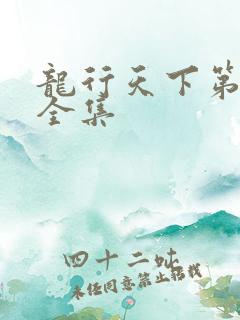 龍行天下第
全集
四十二
未经同意禁止转载